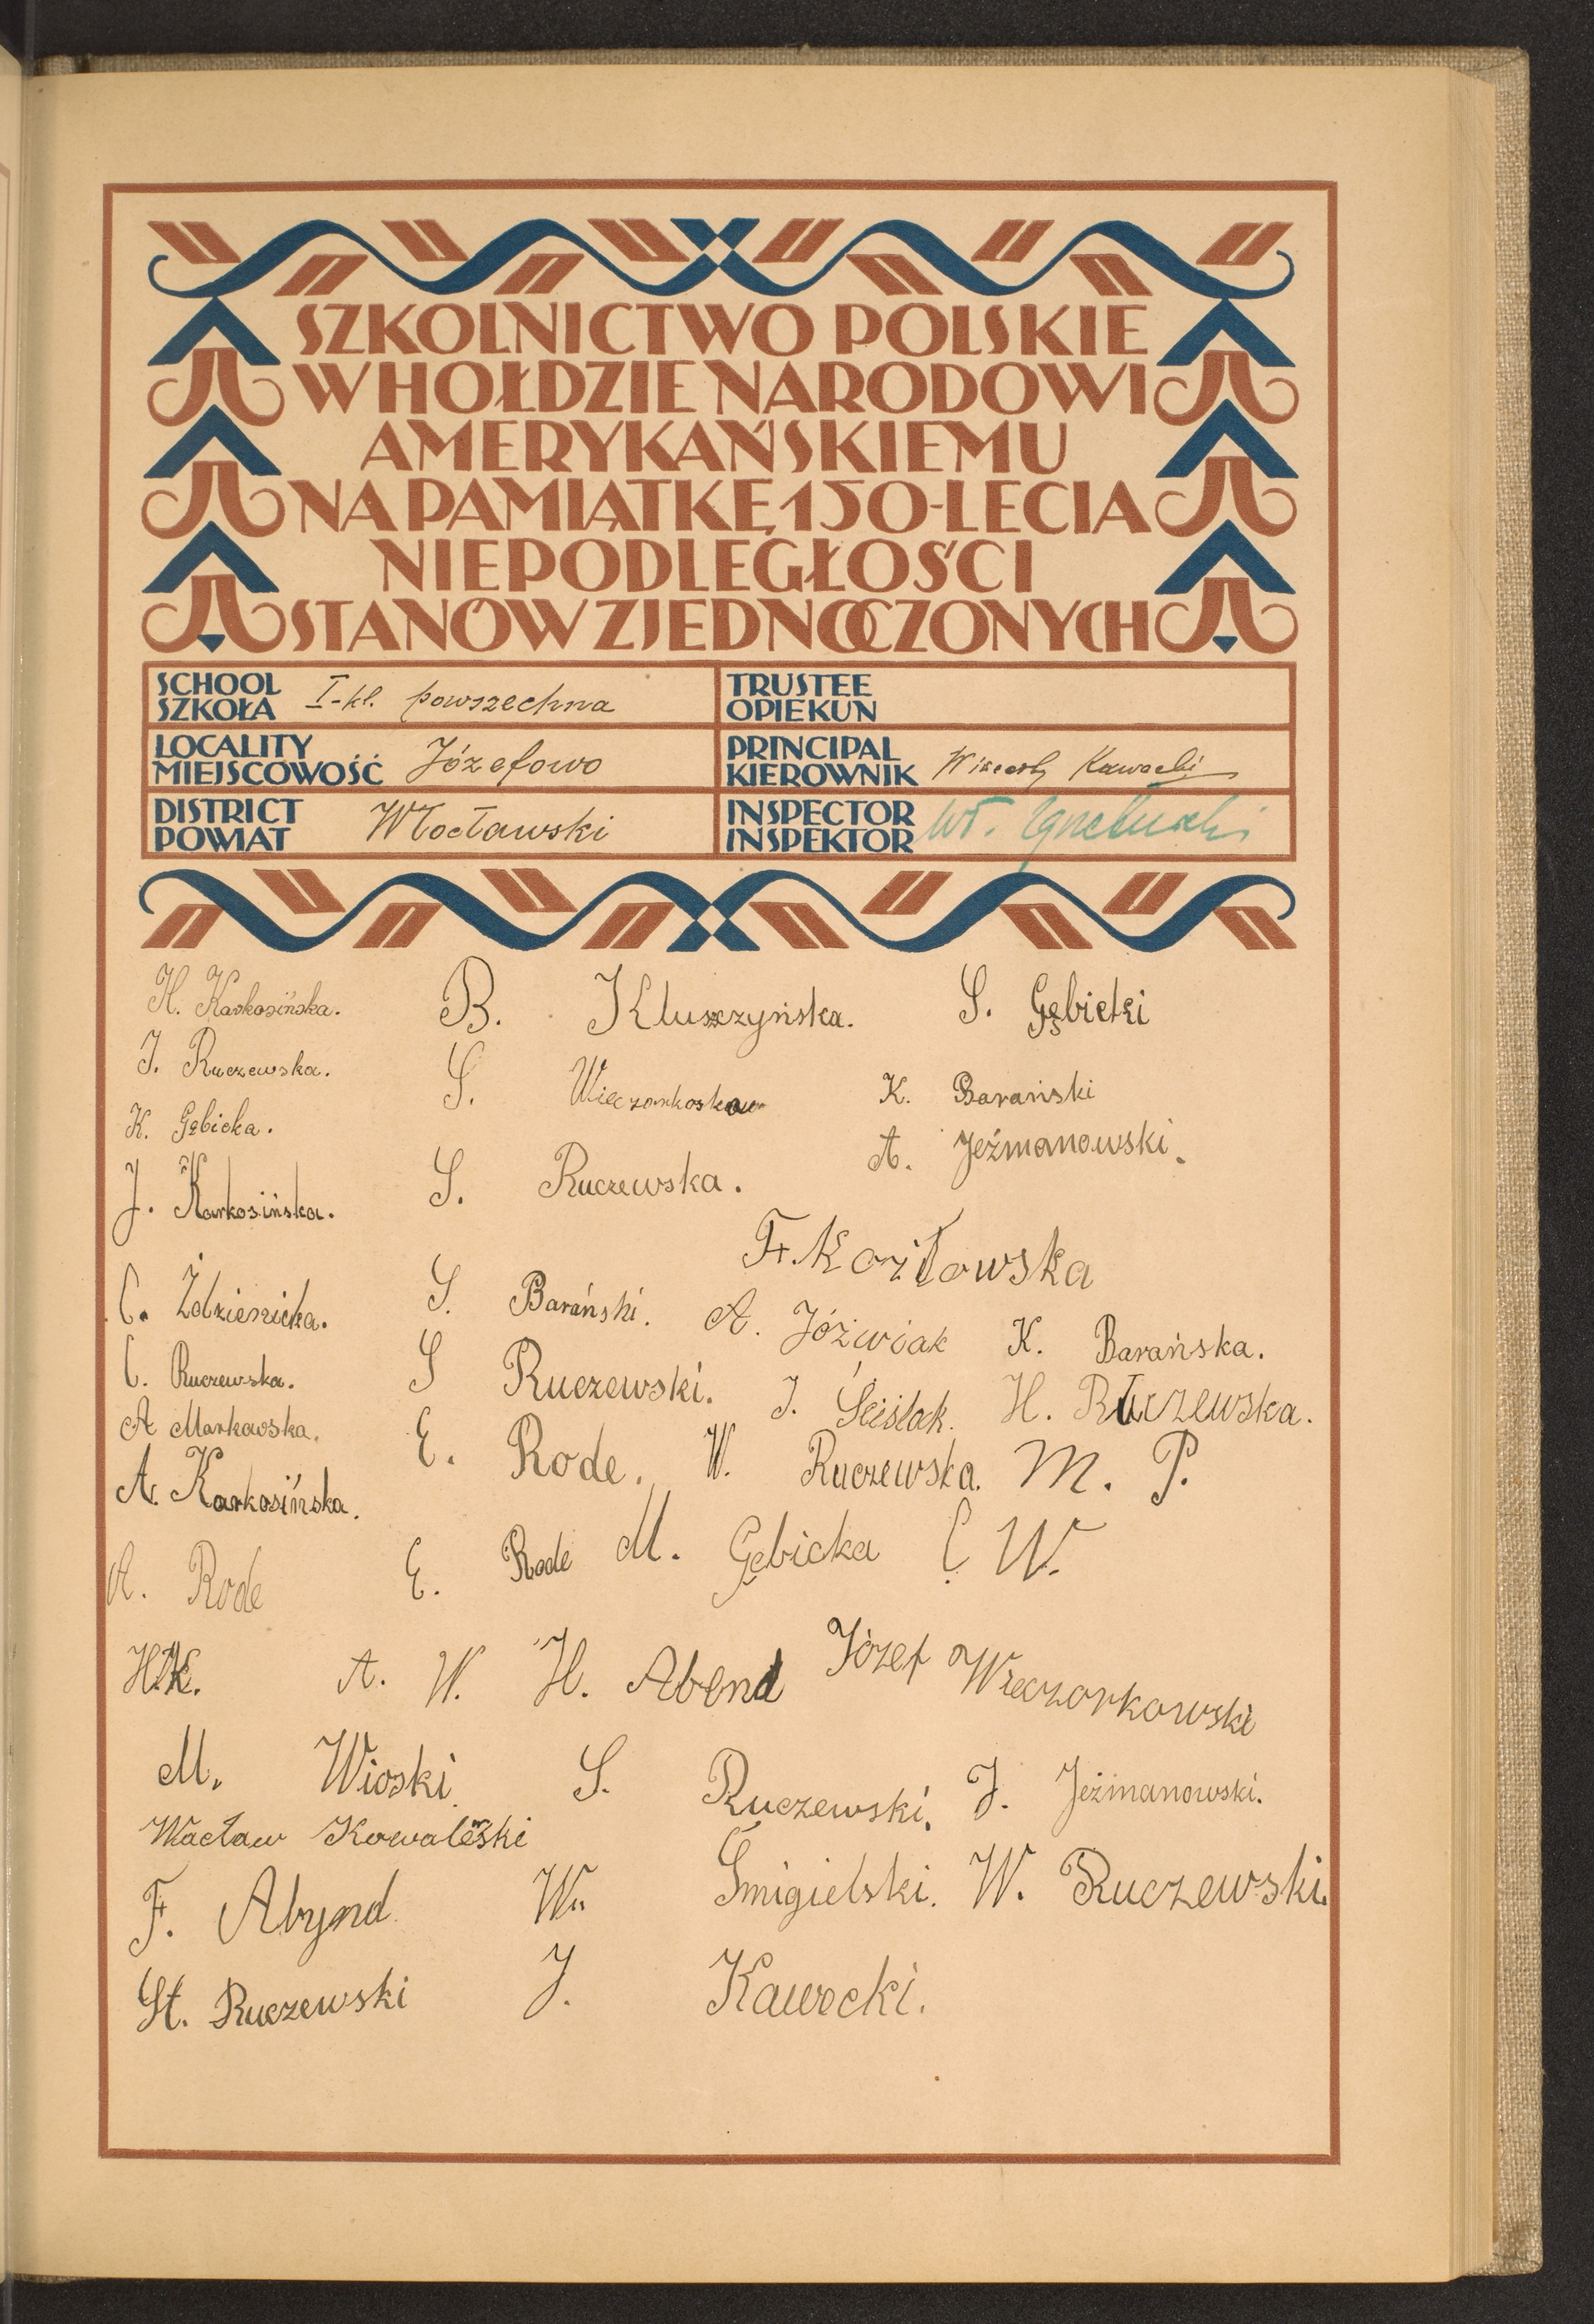 SZKOLNICTWO POLSKIE
W HOŁDZIE NARODOWI
AMERYKAŃSKIEMU
NA PAMIĄTKĘ 150-LECIA
NIEPODLEGŁOŚCI
STANÓW ZJEDNOCZONYCH
SCHOOL
SZKOŁA I-kl. powszechna
TRUSTEE
OPIEKUN
LOCALITY
MIEJSCOWOŚĆ Józefowo
PRINCIPAL
KIEROWNIK Kawecki
DISTRICT
POWIAT Włocławski
INSPECTOR
INSPEKTOR Wł.
H. Karkosińska. B. Kluszczyńska. S. Gębicki
J. Ruczewska. S. K. Barański
K. Gębicka. A. Jeźmanowski.
J. Karkosińska. S. Ruczewska.
F. Koziłowska
C. Żdzienicka. S. Barański. A. Jóźwiak K. Barańska.
C. Ruczewska. S Ruczewski. J. Śćiślak. H. Ruczewska.
A Markowska. E. Rode. W. Ruczewska. M. P.
A. Karkosińska.
A. Rode E. Rode M. Gębicka C W.
H.K. A. W. H. Abend Józef Wieczorkowski
M. Wioski S. Ruczewski. J. Jeżmanowski.
Wacław Kowalewski
F. Abynd W. Śmigielski. W. Ruczewski.
St. Ruczewski J. Kawecki.